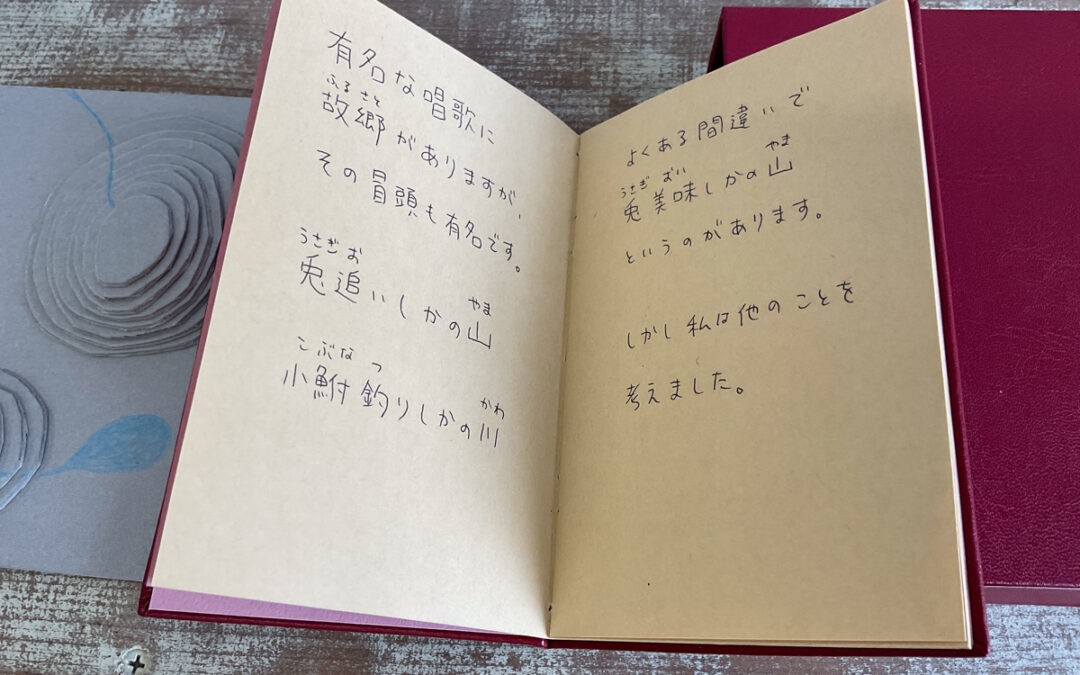 有名な唱歌に
ふるさと
故郷がありますが、
その冒頭も有名です。
うさぎお
やま
兎追いしかの山
こぶな つ
かわ
小鮒釣りしかの川
よくある間違いで
うさぎ おい
やま
兎美味しかの山
というのがあります。
しかし私は他のことを
考えました。